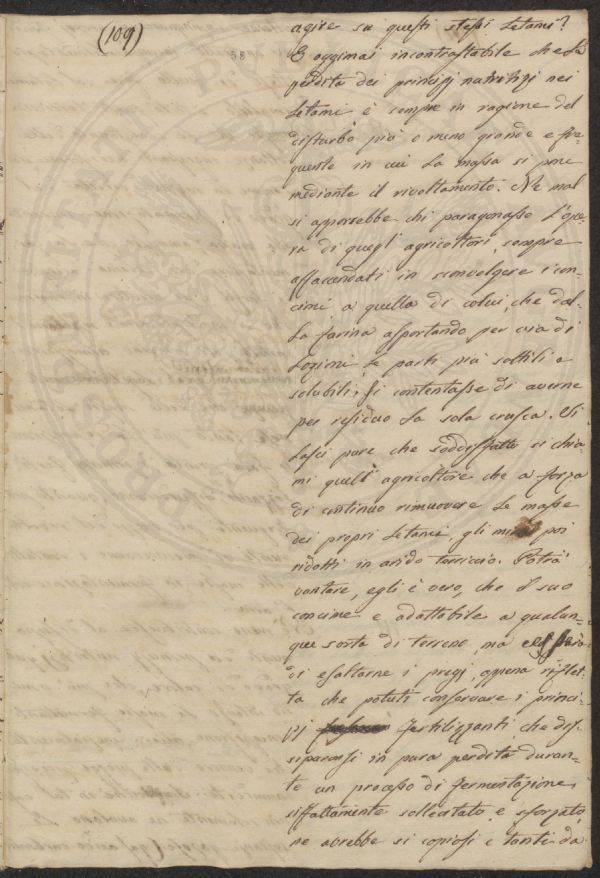 (109)
58
agire su questi stessi Letami?
E oggimai incontrastabile che la
perdita dei principj nutritizj nei
Letami è sempre in ragione del
disturbo più o meno grande e fre-
quente in cui la massa si pone
mediante il rivoltamento. Ne mal
si apporrebbe chi paragonasse l'ope-
ra di quegl' agricoltori, sempre
affacendati in sconvolgere i con-
cimi a quella di colui, che dal-
la farina asportando per via di
Lozioni le parti più sottili e
solubili, si contentasse di averne
per residuo la sola crusca. Si
lasci pure che soddisfatto si chia-
mi quell' agricoltore che a forza
di continuo rimuovere le masse
dei propri Letami, gli poi
ridotti in arido terriccio. Potrà
vantare, egli è vero, che il suo
concime e adattabile a qualun-
que sorta di terreno, ma
di esaltarne i pregj, appena riflet-
ta che potuti conservare i princi-
pj fertilizzanti, che dis-
siparonsi in pura perdita duran-
te un processo di fermentazione
siffattamente sollecitato e sforzato,
ne avrebbe si copiosi e tanti da